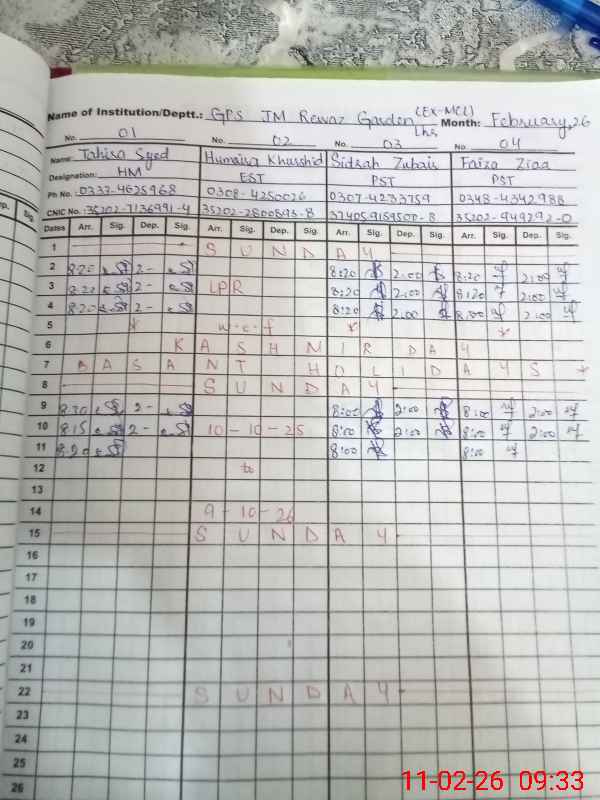 (Ex-MCL)
Name of Institution/Deptt.: GPS JM Rewaz Garden Lhr Month: February, 26
No. 01 No. 02 No. 03 No. 04
Name: Tahira Syed Humaira Khurshid Sidrah Zubair Faiza Ziaa
Designation: HM EST PST PST
Ph No. 0337-4625968 0308-4250026 0307-4233759 0348-4342988
CNIC No. 35202-7136991-4 35202-2800893-8 37405-9159500-8 35202-949292-0
Dates Arr. Sig. Dep. Sig. Arr. Sig. Dep. Sig. Arr. Sig. Dep. Sig. Arr. Sig. Dep. Sig.
1 SUNDAY
2 8:20 2- 8:20 2:00 8:20 2:00
3 8:20 2- LPR 8:20 2:00 8:20 2:00
4 8:20 2- 8:20 2:00 8:00 2:00
5 w-e-f
6 KASHMIR DAY
7 BASANT HOLIDAYS
8 SUNDAY
9 8:30 2- 8:00 2:00 8:00 2:00
10 8:15 2- 10-10-25 8:00 2:00 8:00 2:00
11 8:20 8:00 8:00
12 to
13
14 9-10-26
15 SUNDAY
16
17
18
19
20
21
22 SUNDAY
23
24
25
26
11-02-26 09:33